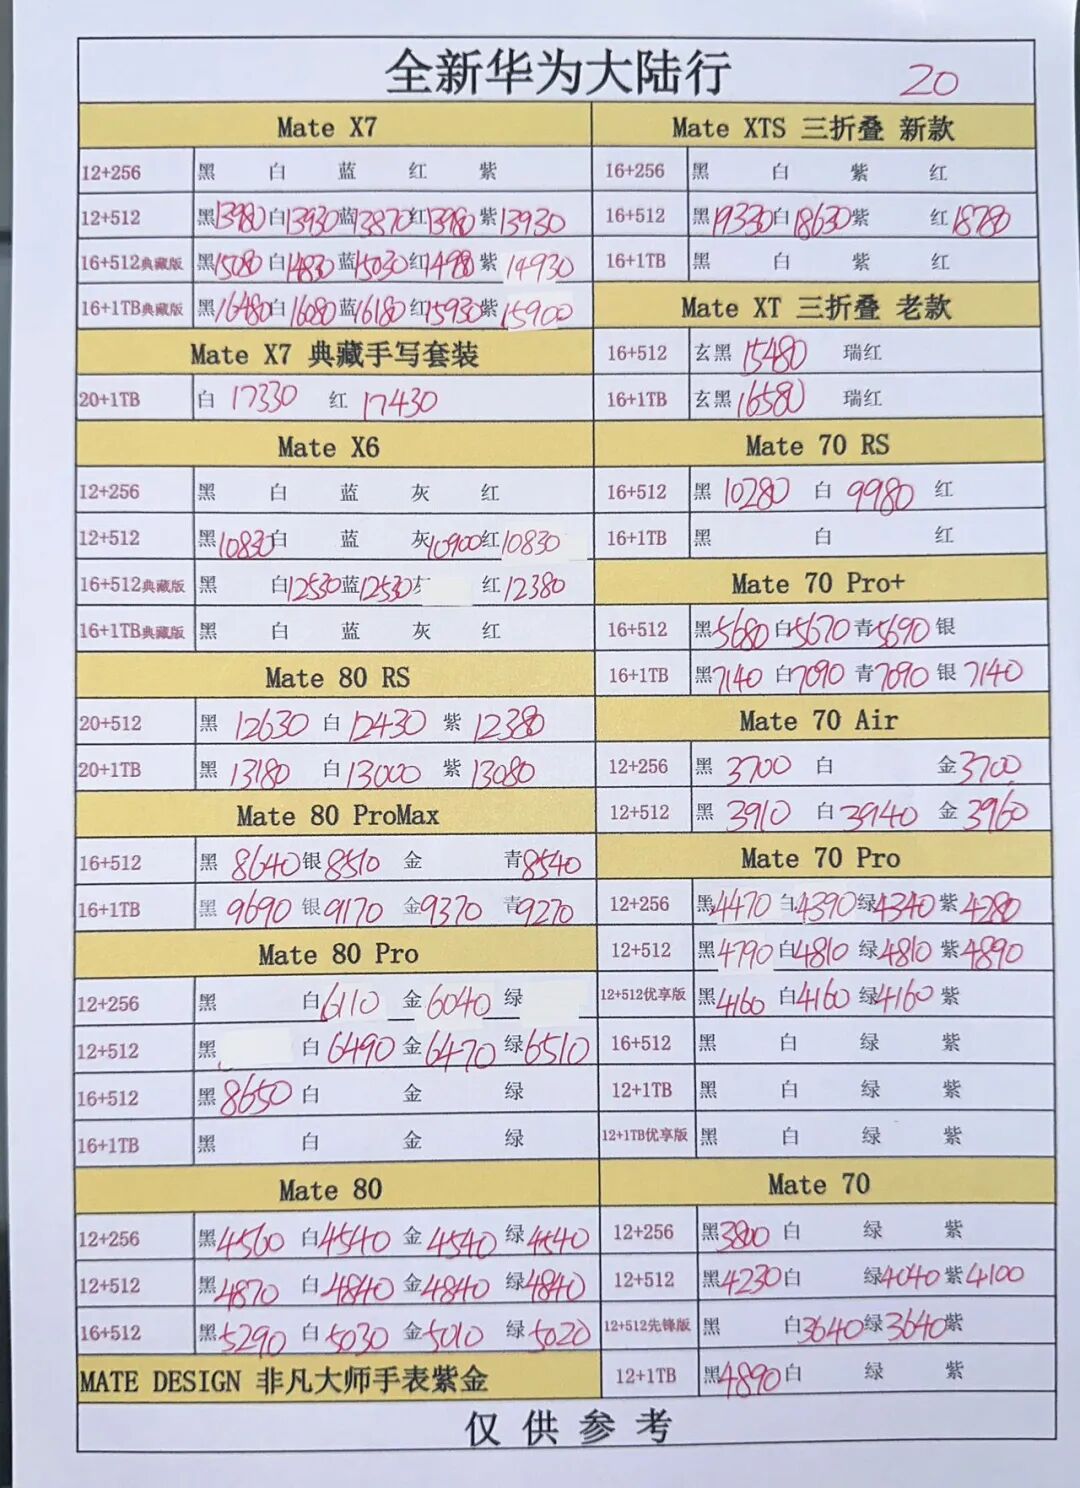 全新华为大陆行 20
Mate X7
12+256 黑 白 蓝 红 紫
12+512 黑13980 白13930 蓝13870 红13980 紫13930
16+512典藏版 黑15080 白14830 蓝15030 红14980 紫14930
16+1TB典藏版 黑16480 白16080 蓝16180 红15930 紫15900
Mate X7 典藏手写套装
20+1TB 白 17330 红 17430
Mate X6
12+256 黑 白 蓝 灰 红
12+512 黑10830 白 蓝 灰10900 红10830
16+512典藏版 黑 白12530 蓝12530 红12380
16+1TB典藏版 黑 白 蓝 灰 红
Mate 80 RS
20+512 黑 12630 白 12430 紫 12380
20+1TB 黑 13180 白 13000 紫 13080
Mate 80 ProMax
16+512 黑 8640 银 8510 金 青 8540
16+1TB 黑 9690 银 9170 金 9370 青 9270
Mate 80 Pro
12+256 黑 白 6110 金 6040 绿
12+512 黑 白 6490 金 6470 绿 6510
16+512 黑 8650 白 金 绿
16+1TB 黑 白 金 绿
Mate 80
12+256 黑4560 白4540 金4540 绿4540
12+512 黑4870 白4840 金4840 绿4840
16+512 黑5290 白5030 金5010 绿5020
MATE DESIGN 非凡大师手表紫金
Mate XTS 三折叠 新款
16+256 黑 白 紫 红
16+512 黑19330 白18630 紫 红18780
16+1TB 黑 白 紫 红
Mate XT 三折叠 老款
16+512 玄黑 15480 瑞红
16+1TB 玄黑 16580 瑞红
Mate 70 RS
16+512 黑 10280 白 9980 红
16+1TB 黑 白 红
Mate 70 Pro+
16+512 黑5680 白5670 青5690 银
16+1TB 黑7140 白7090 青7090 银 7140
Mate 70 Air
12+256 黑 3700 白 金3700
12+512 黑 3910 白 3940 金 3960
Mate 70 Pro
12+256 黑4470 白4390 绿4340 紫4280
12+512 黑4790 白4810 绿4810 紫4890
12+512优享版 黑4160 白4160 绿4160 紫
16+512 黑 白 绿 紫
12+1TB 黑 白 绿 紫
12+1TB优享版 黑 白 绿 紫
Mate 70
12+256 黑3800 白 绿 紫
12+512 黑4230 白 绿4040 紫4100
12+512先锋版 黑 白3640 绿3640 紫
12+1TB 黑4890 白 绿 紫
仅供参考